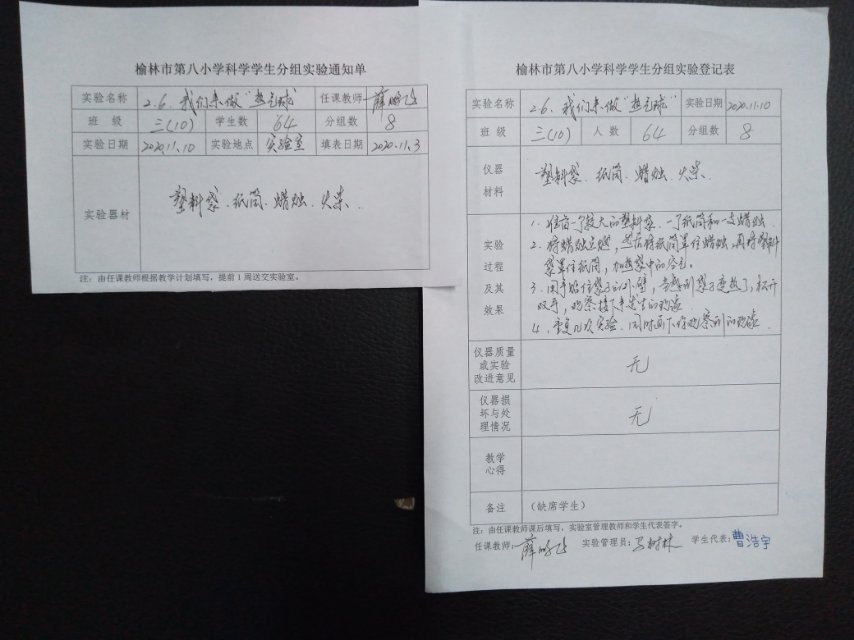 榆林市第八小学科学学生分组实验通知单
实验名称 2.6.我们来做"热气球" 任课教师 薛
班 级 三(10) 学生数 64 分组数 8
实验日期 2020.11.10 实验地点 实验室 填表日期 2020.11.3
实验器材 塑料袋、纸筒、蜡烛、火柴.
注:由任课教师根据教学计划填写,提前1周送交实验室。
榆林市第八小学科学学生分组实验登记表
实验名称 2.6.我们来做"热气球" 实验日期 2020.11.10
班 级 三(10) 人 数 64 分组数 8
仪器
材料
塑料袋、纸筒、蜡烛、火柴.
实验
过程
及其
效果
1.准备一个较大的塑料袋、一个纸筒和一支蜡烛.
2.将蜡烛点燃,然后将纸筒罩住蜡烛,再将塑料
袋罩住纸筒,加热袋中的空气.
3.用手贴住袋子的外壁,当感到袋子变热了,松开
双手,观察接下来发生的现象
4.重复几次实验.同时画下你观察到的现象.
仪器质量
或实验
改进意见
无
仪器损
坏与处
理情况
无
教学
心得
备注 (缺席学生)
注:由任课教师课后填写,实验室管理教师和学生代表签字。
任课教师: 薛 实验管理员: 马树林 学生代表: 曹浩宇